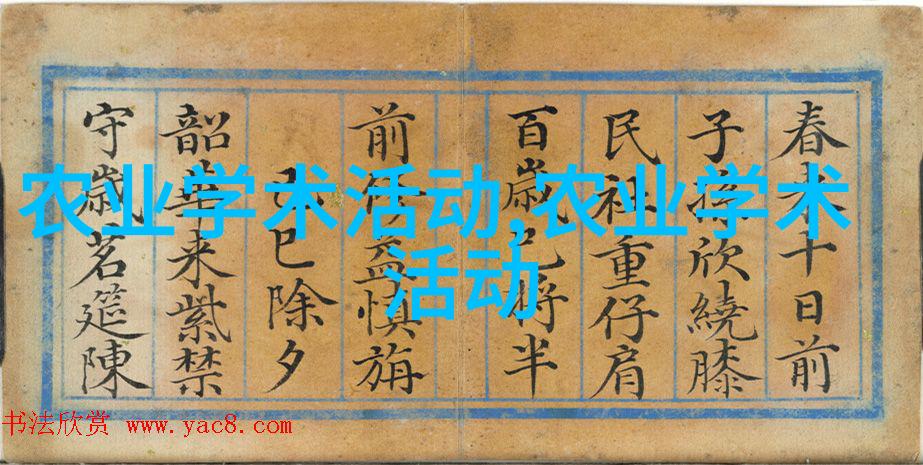 春十日前
子孫欣繞膝
民社重仔肩
百歲已将半
前益慎旃
己巳除夕
韶華来紫禁
守歲茗筵陳
农业学术活动,农业学术
活动
书法欣赏 www.yac8.com